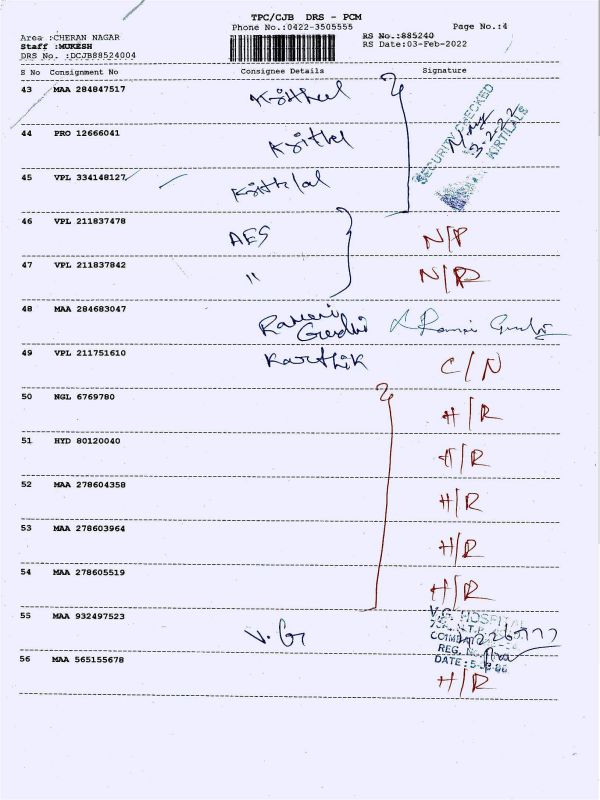 TPC/CJB DRS - PCM
Phone No.:0422-3505555
Page No.:4
Area :CHERAN NAGAR
RS No.:885240
Staff :MUKESH
RS Date:03-Feb-2022
DRS No. :DCJB88524004
S No Consignment No Consignee Details Signature
43 MAA 284847517
SECURITY CHECKED
3-2-22
KIRTILALS
44 PRO 12666041
45 VPL 334148127
46 VPL 211837478 AES N/P
47 VPL 211837842 " N/R
48 MAA 284683047
49 VPL 211751610 Karthik C/N
50 NGL 6769780 H/R
51 HYD 80120040 H/R
52 MAA 278604358 H/R
53 MAA 278603964 H/R
54 MAA 278605519 H/R
55 MAA 932497523 V.G
V.G. HOSPITAL
REG. No.
DATE :
56 MAA 565155678 H/R